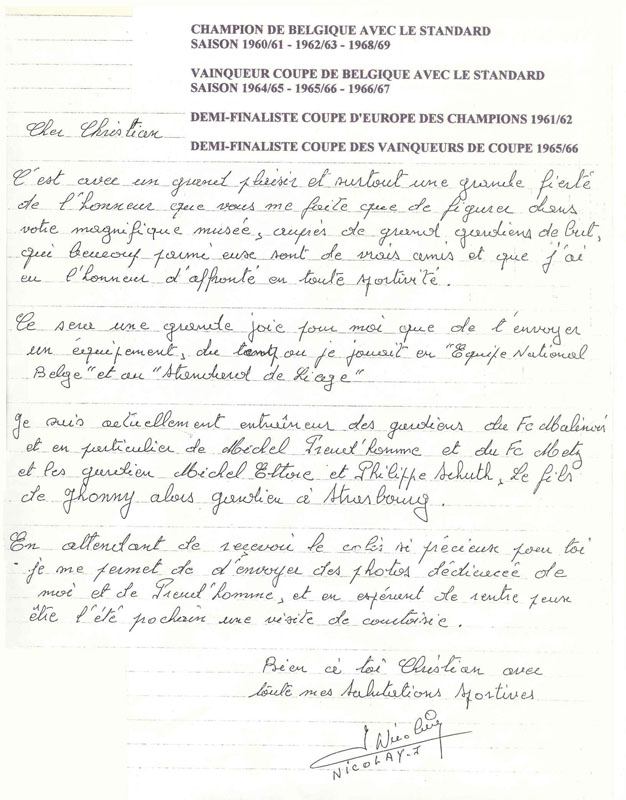 CHAMPION DE BELGIQUE AVEC LE STANDARD
SAISON 1960/61 - 1962/63 - 1968/69
VAINQUEUR COUPE DE BELGIQUE AVEC LE STANDARD
SAISON 1964/65 - 1965/66 - 1966/67
DEMI-FINALISTE COUPE D'EUROPE DES CHAMPIONS 1961/62
DEMI-FINALISTE COUPE DES VAINQUEURS DE COUPE 1965/66
Cher Christian
C'est avec un grand plaisir et surtout une grande fierté
de l'honneur que vous me faite que de figurer dans
votre magnifique musée, aupres de grand gardiens de but,
qui beaucoup parmi eux sont de vrais amis et que j'ai
eu l'honneur d'affronté en toute sportivité.
Ce sera une grande joie pour moi que de t'envoyer
un équipement, du temp ou je jouait en "Equipe National
Belge" et au "Standard de Liege"
Je suis actuellement entraîneur des gardiens du Fc Malinois
et en particulier de Michel Preud'homme et du Fc Metz
et les gardien Michel Ettore et Philippe Schuth, Le fils
de Jhonny alors gardien à Strasbourg.
En attendant de recevoir le colis si précieux pour toi
je me permet de d'envoyer des photos dédicacée de
moi et de Preud'homme, et en espérent de rentre peux
être l'été pochain une visite de courtoisie.
Bien à toi Christian avec
toute mes Salutations Sportives
J Nicolay
NICOLAY-J